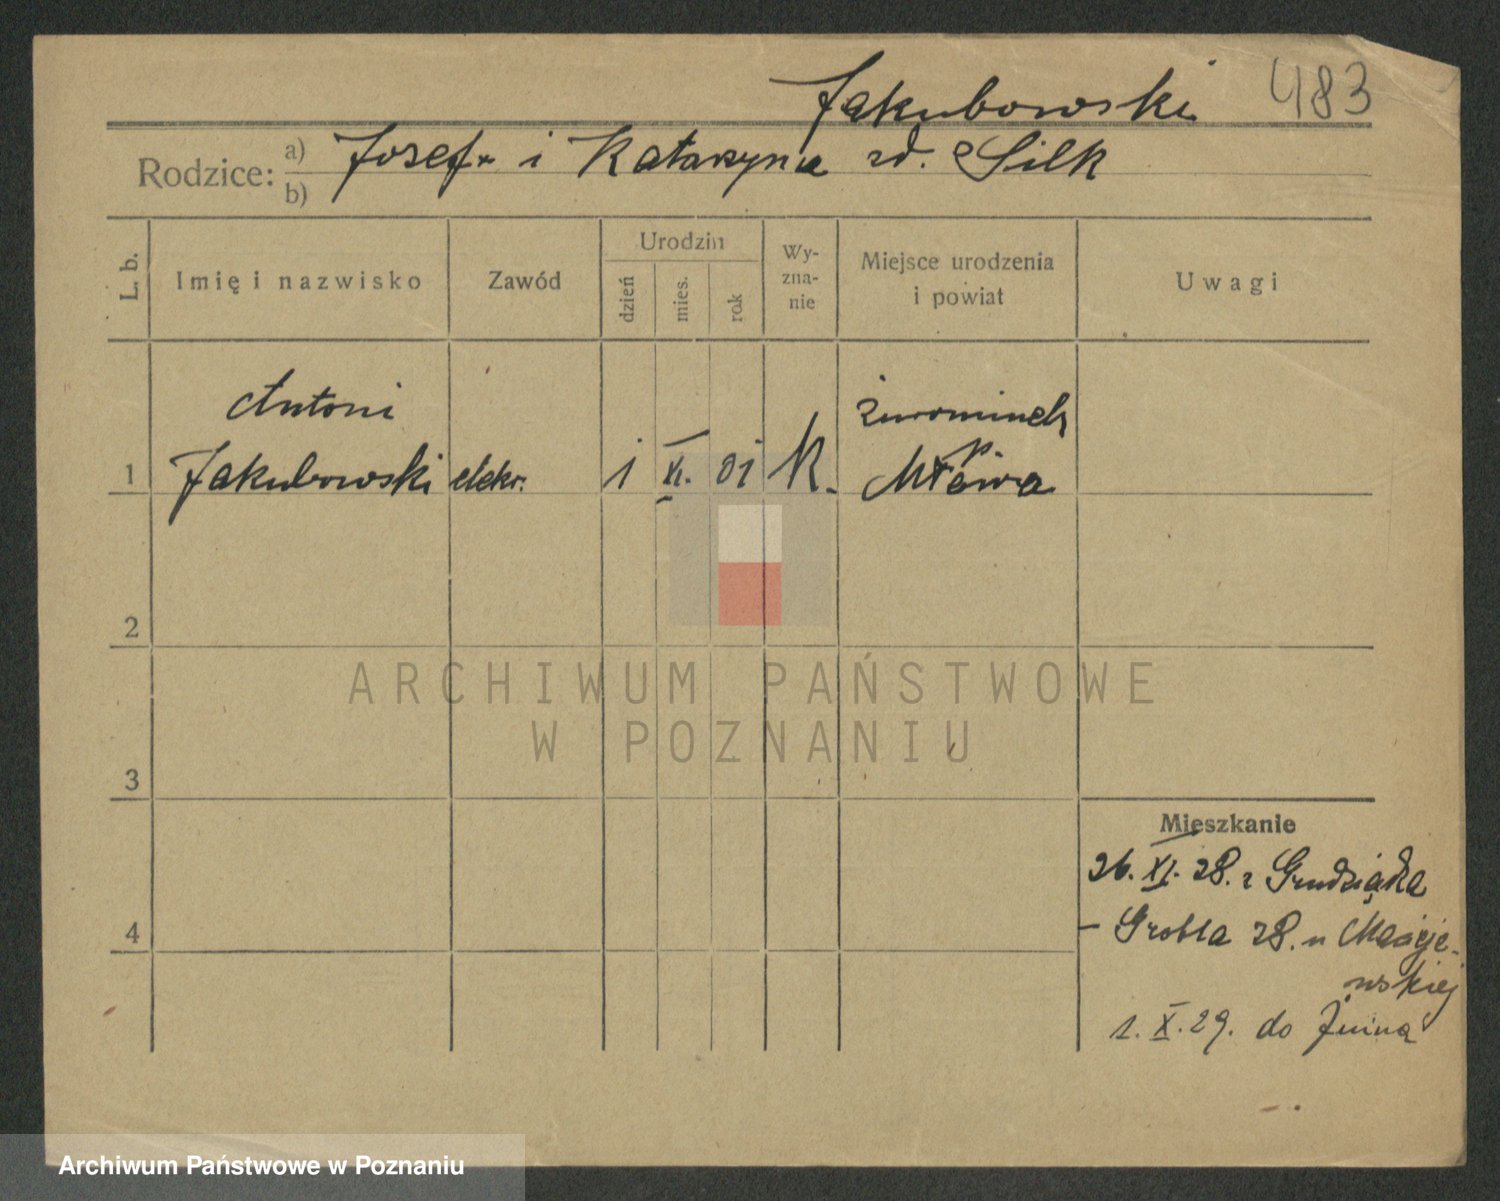 Jakubowski 483
Rodzice: a) Josef i Katarzyna zd. Silk
b)
L. b.
Imię i nazwisko
Zawód
Urodzin
dzień
mies.
rok
Wy-
zna-
nie
Miejsce urodzenia
i powiat
Uwagi
Antoni
Żurominek
p.
1 Jakubowski elekr. 1 XI. 01 K. Mława
2
3
4
ARCHIWUM PAŃSTWOWE
W POZNANIU
Mieszkanie
26. XI. 28. z Grudziądza
- Grobla 28. u Macieje-
wskiej
1. X. 29. do Żnina
Archiwum Państwowe w Poznaniu